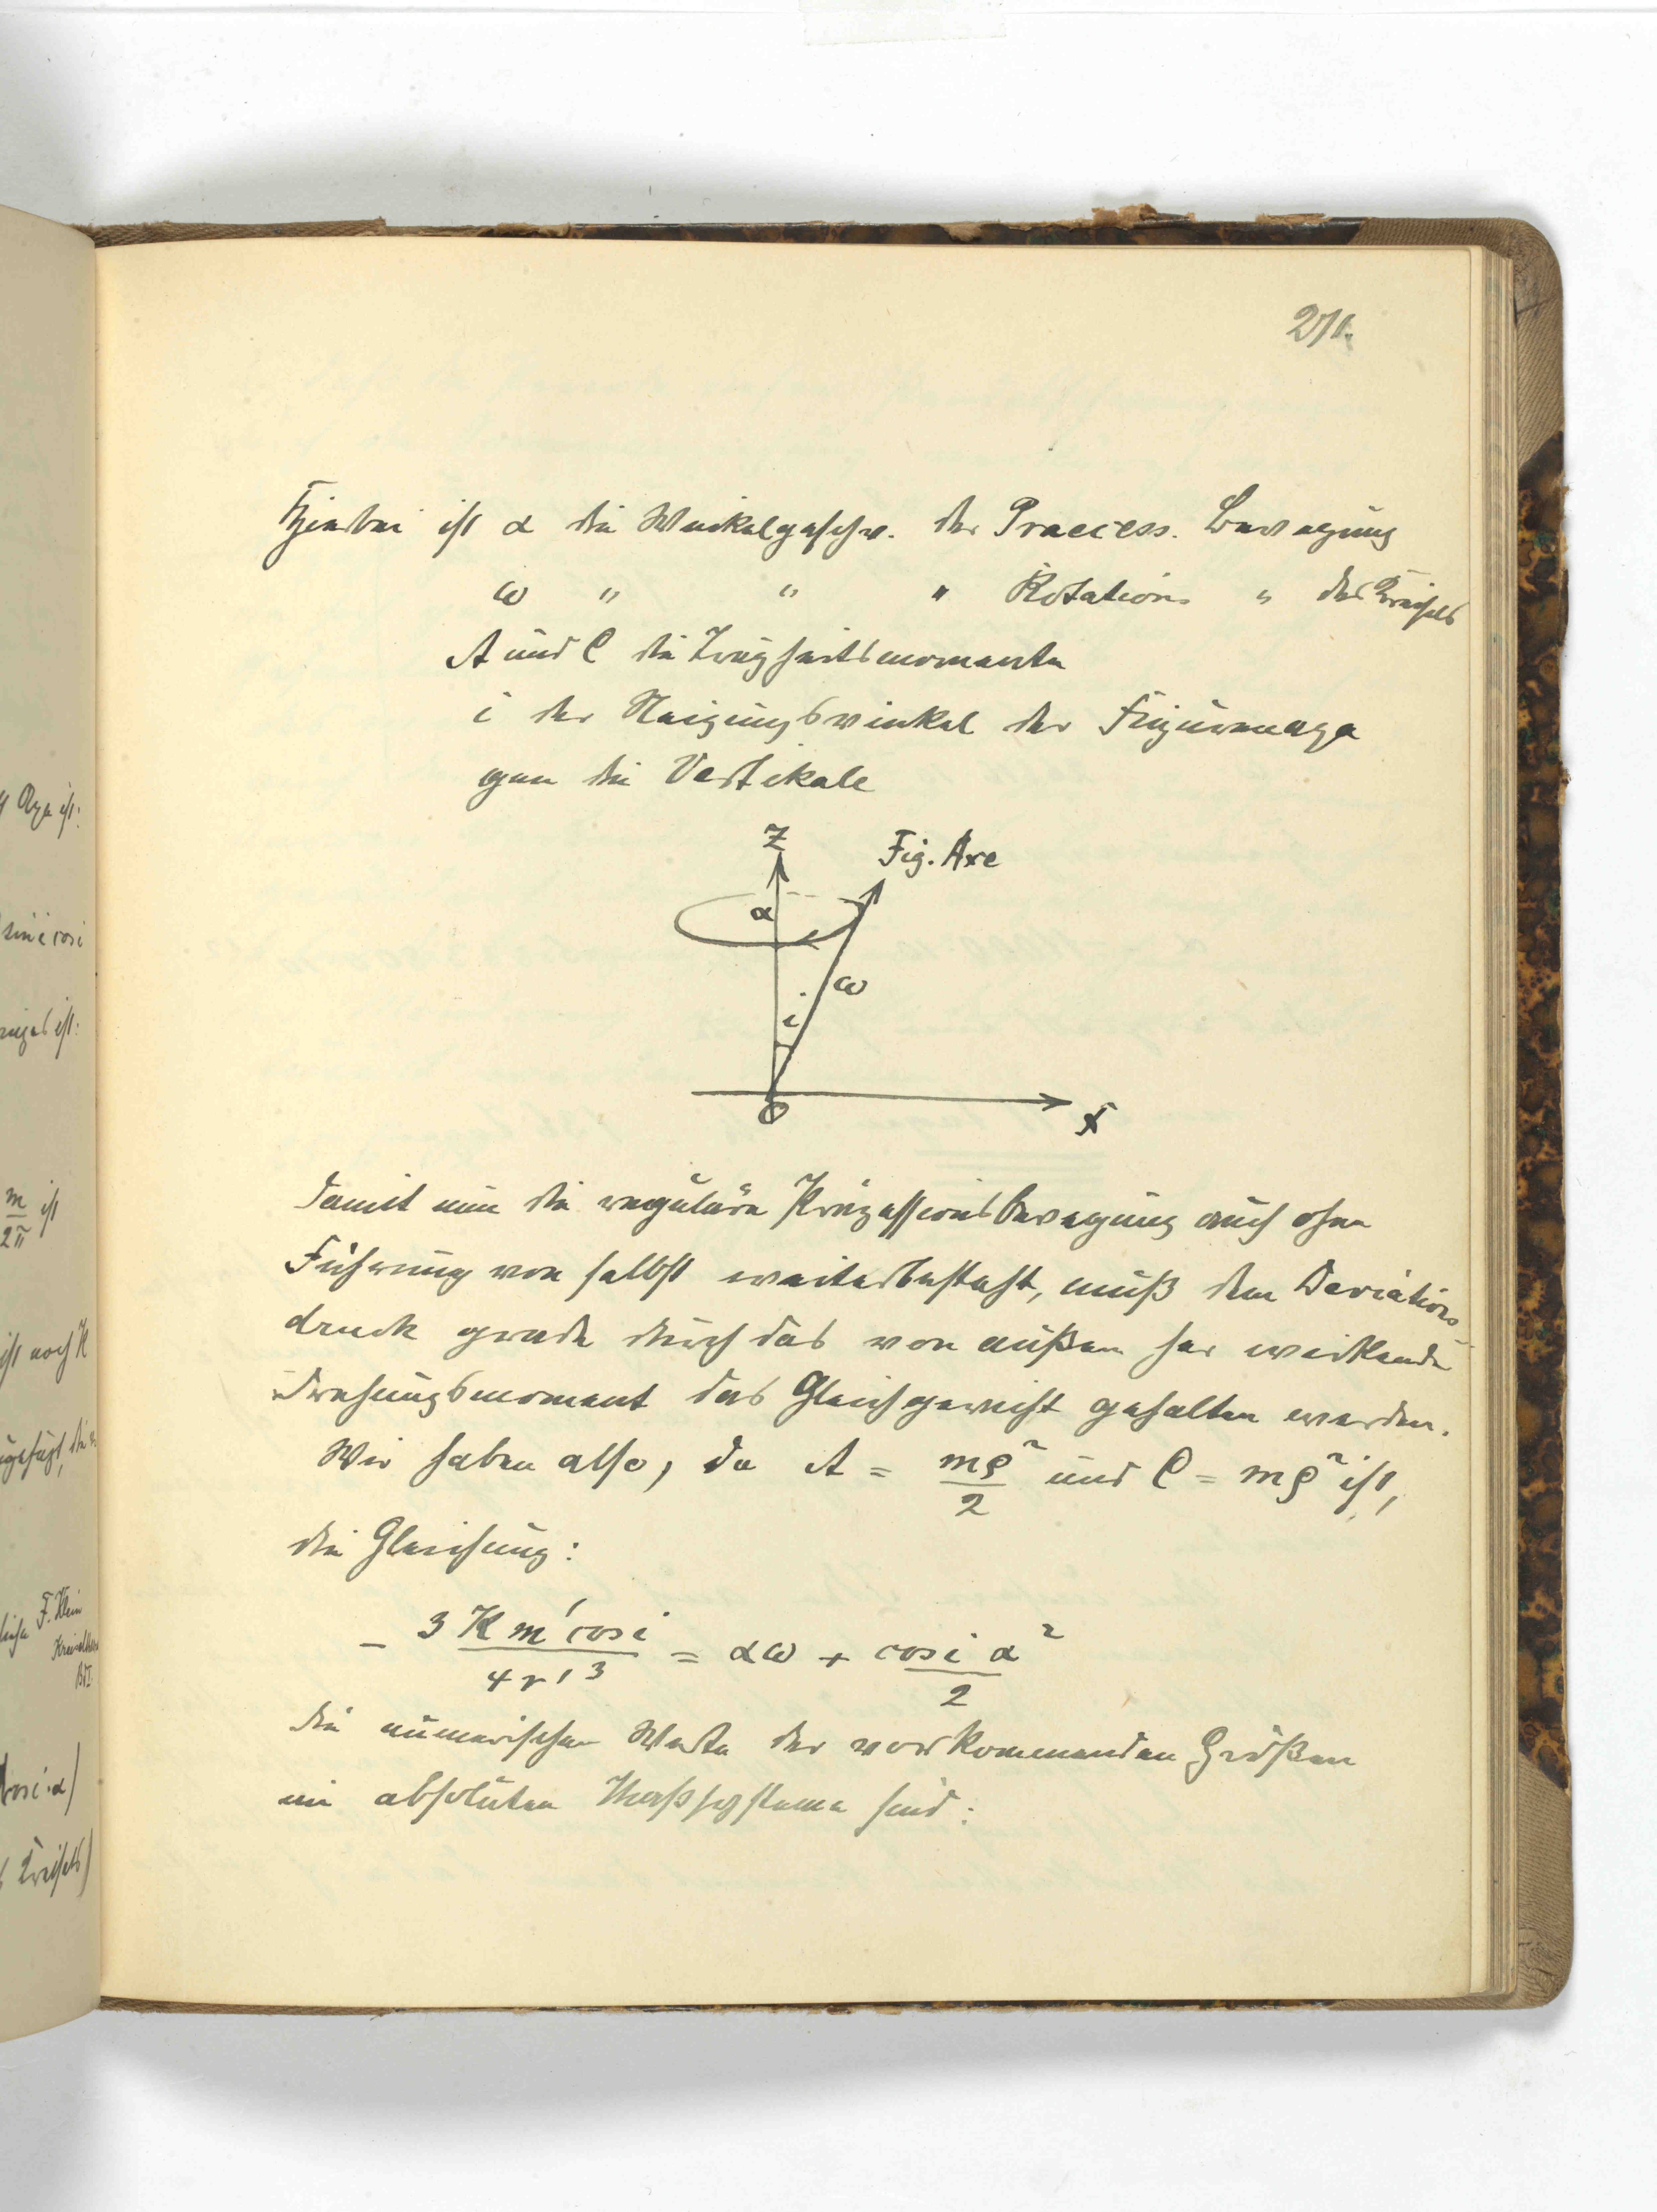 271.
Hierbei ist α die Winkelgeschw. der Praecess. Bewegung
ω " " " Rotations " des Kreisels
A und C die Trägheitsmomente
i der Neigungswinkel der Figurenaxe
gen die Vertikale
Z
Fig. Axe
α
ω
i
O
X
Damit nun die reguläre Präzessionsbewegung auch ohne
Führung von selbst weiterbesteht, muß dem Deviations-
druck grade durch das von außen her wirkende
Drehungsmoment das Gleichgewicht gehalten werden.
Wir haben also, da A = mρ²/2 und C = mρ² ist,
die Gleichung:
- 3 K m' cos i / 4 r'³ = αω + cos i α² / 2
Die numerischen Werte der vorkommenden Größen
im absoluten Maßsysteme sind:
Axe ist:
sin i cos i
ist:
m/2π ist
ist noch K
F. Klein
cos i·α)
Kreisels)